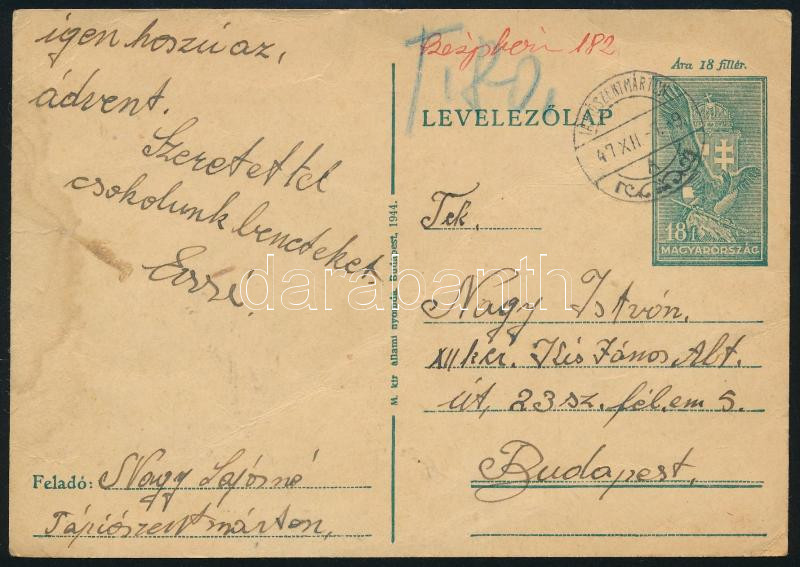 igen hoszú az,
ádvent.
Szeretettel
csokolunk benneteket
Feladó: Nagy Lajosné
Tápiószentmárton,
M. kir. állami nyomda, Budapest, 1944.
182
Ára 18 fillér.
LEVELEZŐLAP
TÁPIÓSZENTMÁRTON
47 XII
18f
MAGYARORSZÁG
Tek.
Nagy István,
XII ker. Kis János Alt.
út, 23 sz. fél. em 5.
Budapest,
darabanth